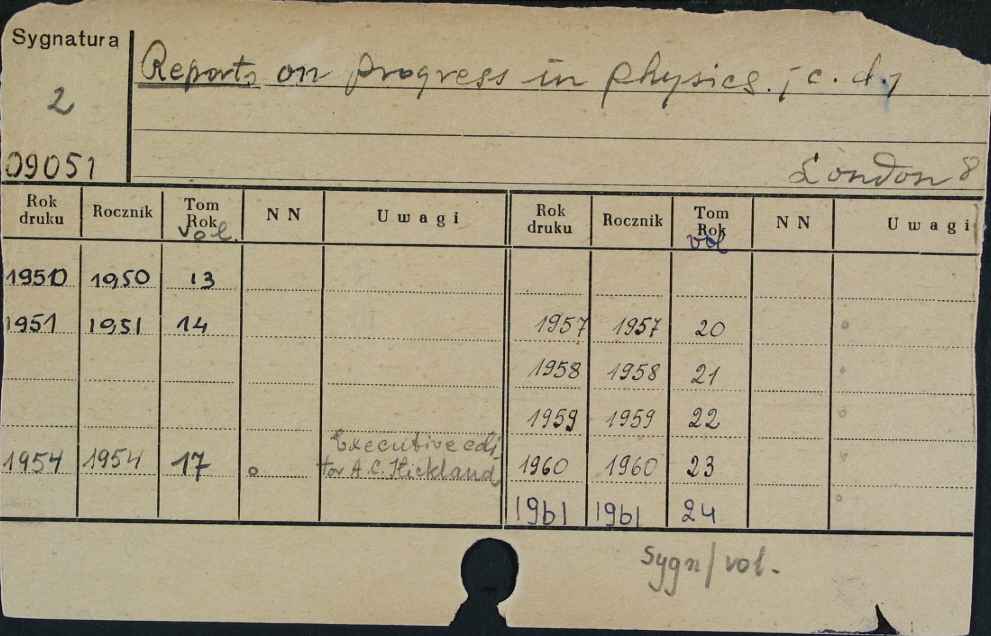 Sygnatura
2
09051
Reports on progress in physics. [c. d.]
London 8
Rok druku Rocznik Tom Rok vol. N N Uwagi Rok druku Rocznik Tom Rok vol N N Uwagi
1950 1950 13
1951 1951 14 1957 1957 20
1958 1958 21
1959 1959 22
1954 1954 17 Executive edi
tor A.C. Stickland 1960 1960 23
1961 1961 24
Sygn/vol.